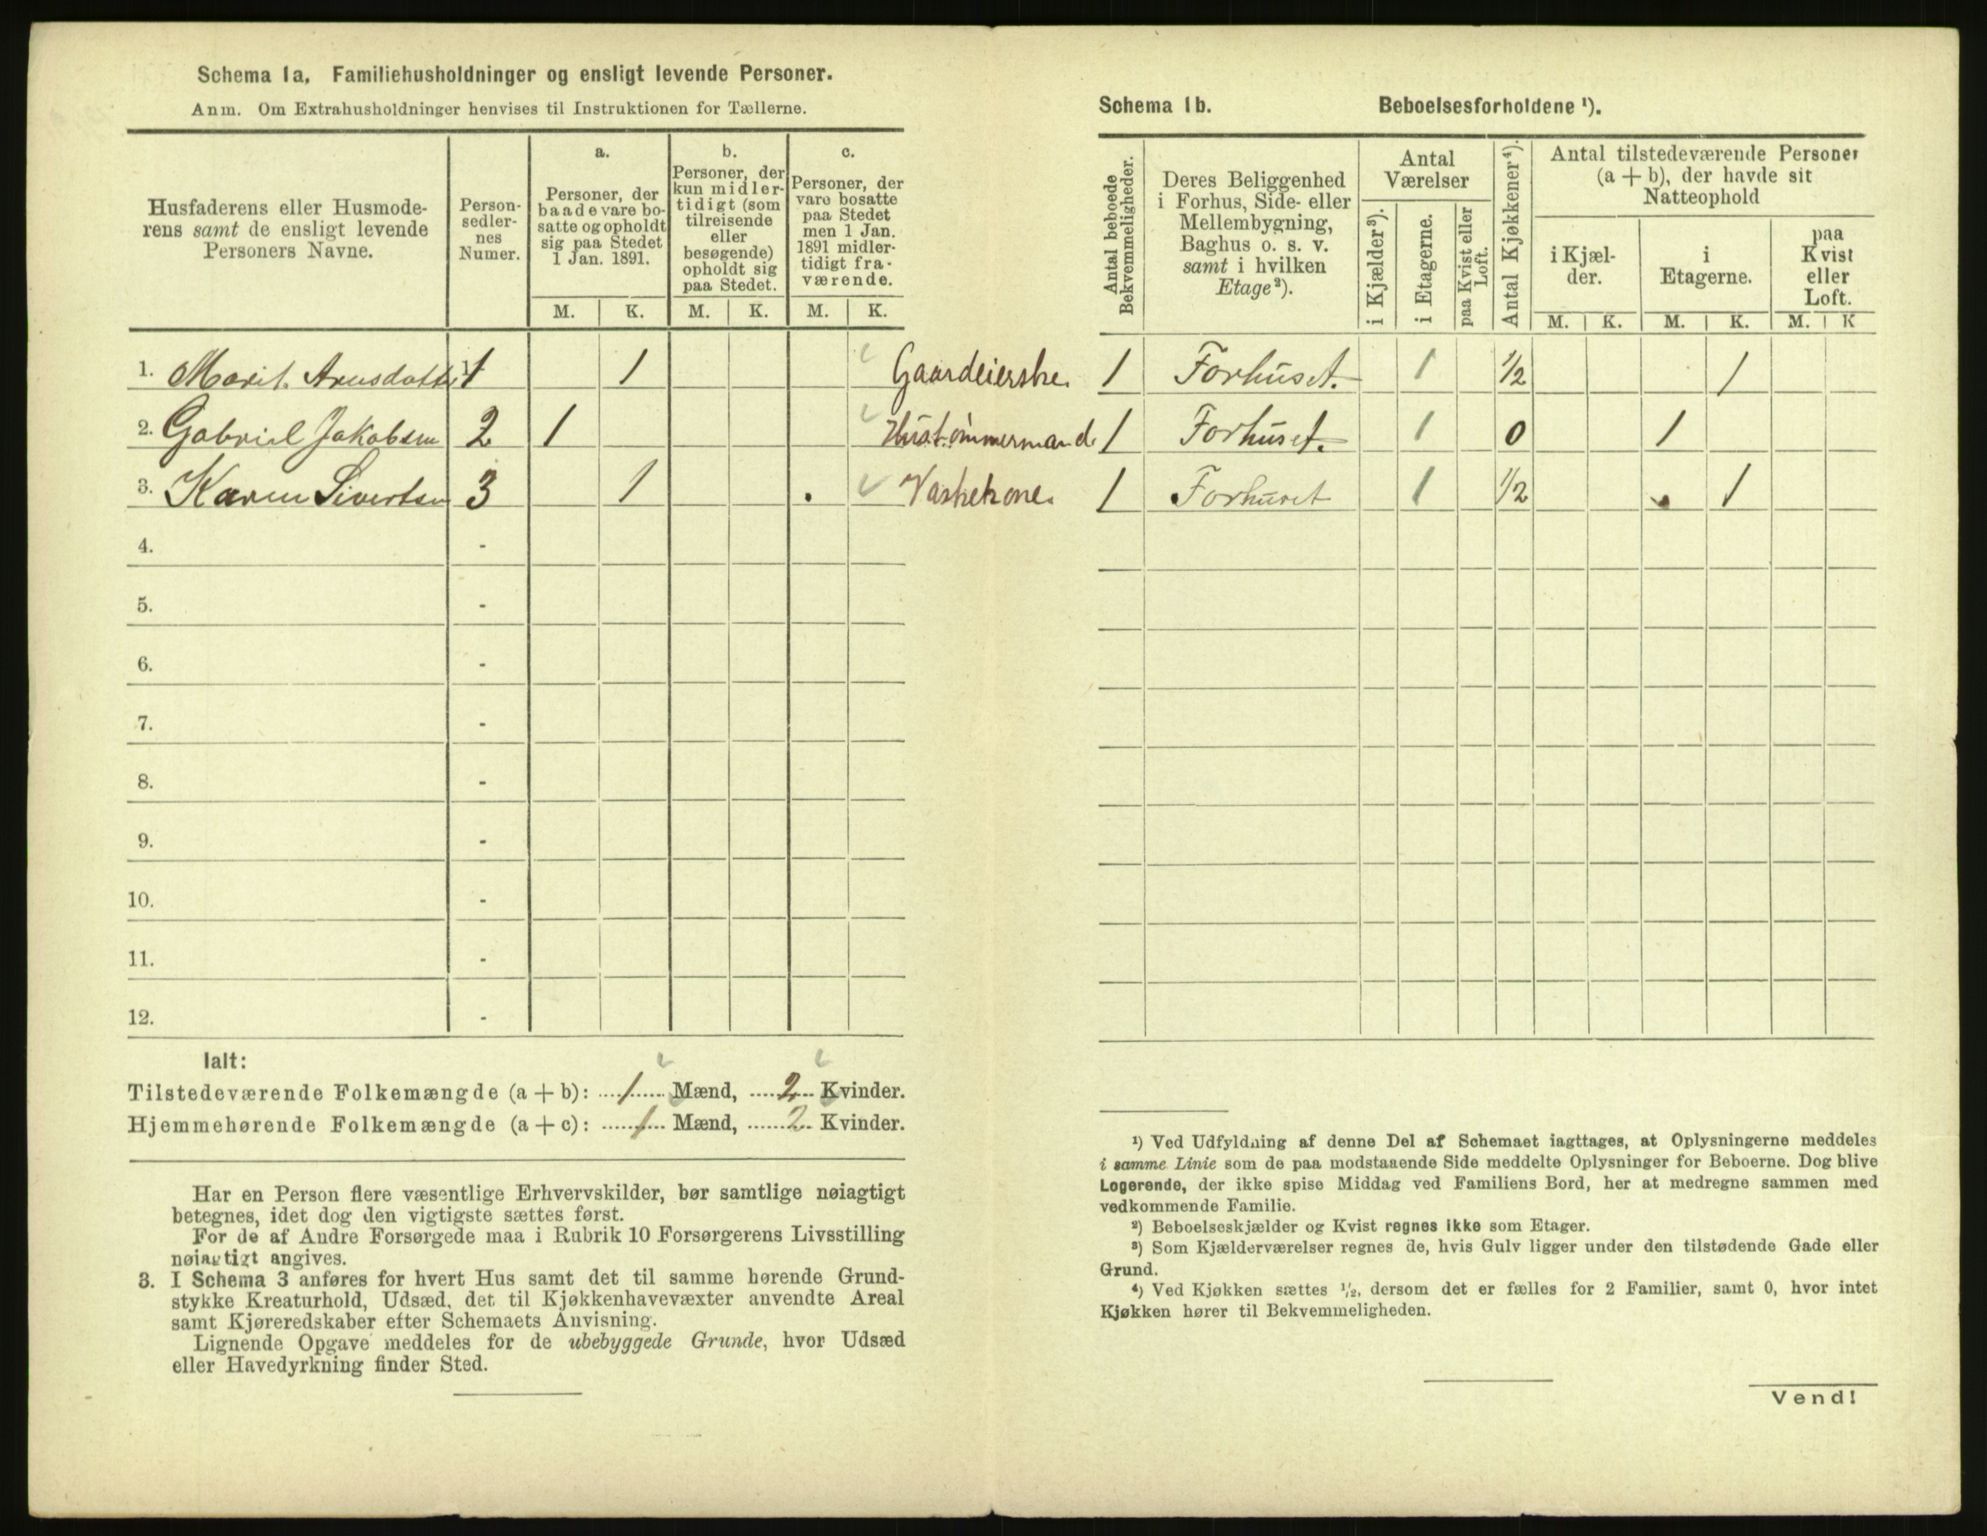 Schema 1a. Familiehusholdninger og ensligt levende Personer.
Anm. Om Extrahusholdninger henvises til Instruktionen for Tællerne.
Husfaderens eller Husmode-
rens samt de ensligt levende
Personers Navne.
Person-
sedler-
nes
Numer.
a.
Personer, der
baade vare bo-
satte og opholdt
sig paa Stedet
1 Jan. 1891.
b.
Personer, der
kun midler-
tidigt (som
tilreisende
eller
besøgende)
opholdt sig
paa Stedet.
c.
Personer, der
vare bosatte
paa Stedet
men 1 Jan.
1891 midler-
tidigt fra-
værende.
M. K. M. K. M. K.
1. Marit Arnsdatter 1 1 Gaardeierske.
2. Gabriel Jakobsen 2 1 Hustømmermand.
3. Karen Sivertsen 3 1 . Vaskekone.
4. -
5. -
6. -
7. -
8. -
9. -
10. -
11. -
12. -
Ialt:
Tilstedeværende Folkemængde (a + b): 1 Mænd, 2 Kvinder.
Hjemmehørende Folkemængde (a + c): 1 Mænd, 2 Kvinder.
Har en Person flere væsentlige Erhvervskilder, bør samtlige nøiagtigt
betegnes, idet dog den vigtigste sættes først.
For de af Andre Forsørgede maa i Rubrik 10 Forsørgerens Livsstilling
nøiagtigt angives.
3. I Schema 3 anføres for hvert Hus samt det til samme hørende Grund-
stykke Kreaturhold, Udsæd, det til Kjøkkenhavevæxter anvendte Areal
samt Kjøreredskaber efter Schemaets Anvisning.
Lignende Opgave meddeles for de ubebyggede Grunde, hvor Udsæd
eller Havedyrkning finder Sted.
Schema 1b. Beboelsesforholdene ¹).
Antal beboede
Bekvemmeligheder.
Deres Beliggenhed
i Forhus, Side- eller
Mellembygning,
Baghus o. s. v.
samt i hvilken
Etage²).
Antal
Værelser
i Kjælder³).
i Etagerne.
paa Kvist eller
Loft.
Antal Kjøkkener⁴).
Antal tilstedeværende Personer
(a + b), der havde sit
Natteophold
i Kjæl-
der.
i
Etagerne.
paa
Kvist
eller
Loft.
M. K. M. K. M. K
1 Forhuset. 1 1/2 1
1 Forhuset. 1 0 1
1 Forhuset 1 1/2 1
¹) Ved Udfyldning af denne Del af Schemaet iagttages, at Oplysningerne meddeles
i samme Linie som de paa modstaaende Side meddelte Oplysninger for Beboerne. Dog blive
Logerende, der ikke spise Middag ved Familiens Bord, her at medregne sammen med
vedkommende Familie.
²) Beboelseskjælder og Kvist regnes ikke som Etager.
³) Som Kjælderværelser regnes de, hvis Gulv ligger under den tilstødende Gade eller
Grund.
⁴) Ved Kjøkken sættes ½, dersom det er fælles for 2 Familier, samt 0, hvor intet
Kjøkken hører til Bekvemmeligheden.
Vend!